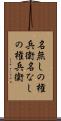 名無しの権
兵衛名なし
の権兵衛